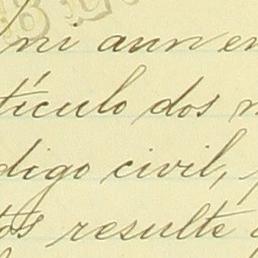 ni aun en
tículo dos
digo civil,
tos resulte